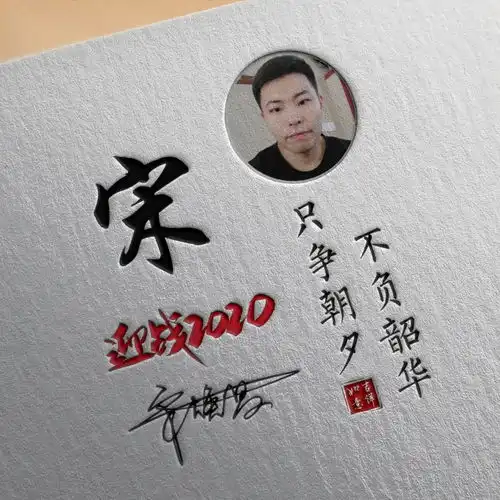 宋
迎战2020
只争朝夕
不负韶华